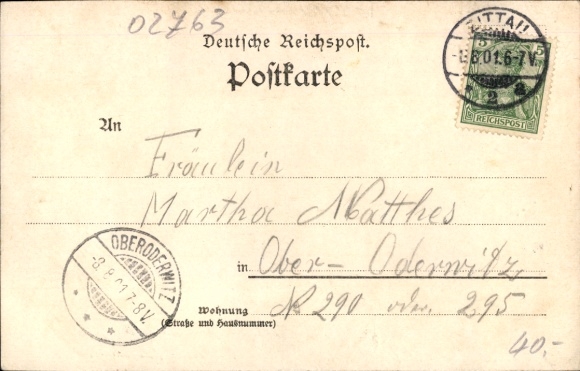 02763
Deutsche Reichspost.
Postkarte
ZITTAU
-8.8.01.6-7V.
* 2 a
5 5
REICHSPOST
An
Fräulein
Martha Matthes
in Ober-Oderwitz
Wohnung № 290 oder 295
(Straße und Hausnummer)
OBERODERWITZ
-8.8.01 7-8V.
* * *
40.-